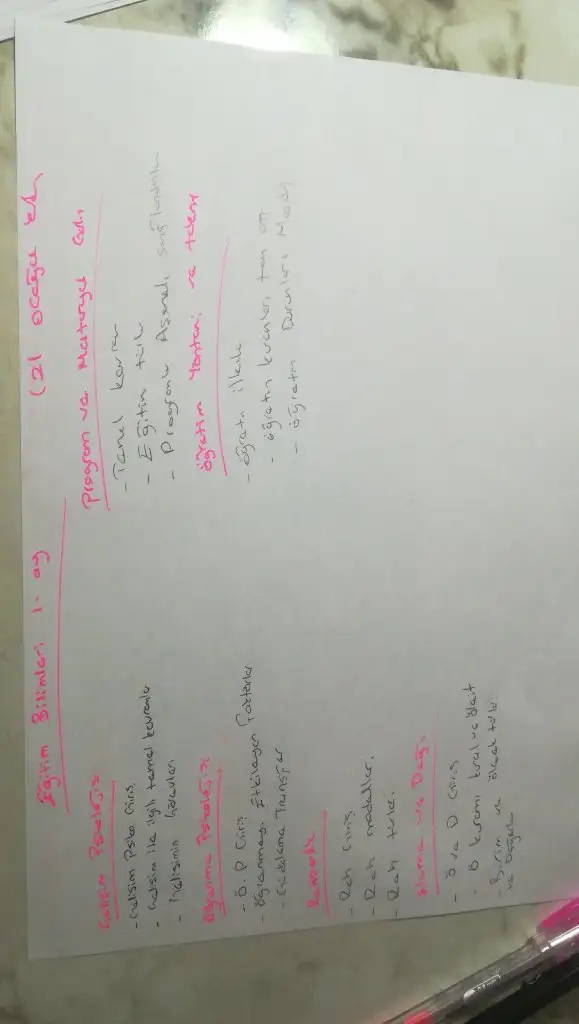 Eğitim Bilimleri 1. ay
(21 Ocağa
Gelişim Psikolojisi
- Gelişim Psiko Giriş
- Gelişim ile ilgili temel kavramlar
- Gelişimin
Öğrenme Psikolojisi
- Ö.P Giriş
- Öğrenmeyi Etkileyen Faktörler
- Transfer
- Reh Giriş
- Reh modeller.
- Reh türler.
Ölçme ve Değ.
- Ö ve D Giriş
- Ö kuramı kural ve ölçüt
- Birim ve ölçek türle.
Program ve Materyal
- Temel kavram
- Eğitim türle
- Programla Aşamalı
Öğretim Yöntem ve tekn
- öğretm ilkele
- öğretm kuramları
- öğretim Durumları